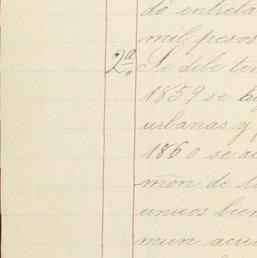 do entreta
mil pesos
2ª Se debe ten
1859 se
urbanas y
1860 se
mon de
unicos bien
mun acu